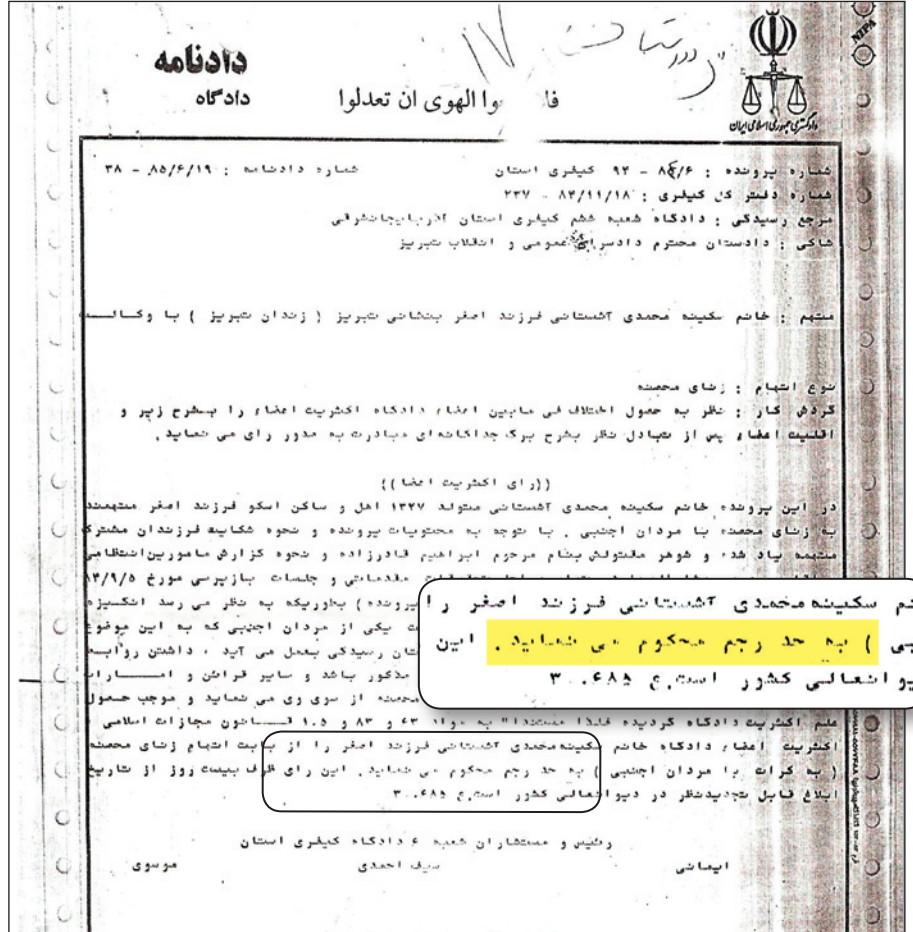 دادنامه
دادگاه
وا الهوی ان تعدلوا
دادگستری جمهوری اسلامی ایران
شماره پرونده : ۸۴/۶ - ۹۴ کیفری استان
شماره دادنامه : ۸۵/۶/۱۹ - ۳۸
شماره دفتر کل کیفری : ۸۴/۱۱/۱۸ - ۲۳۷
مرجع رسیدگی : دادگاه شعبه ششم کیفری استان آذربایجانشرقی
شاکی : دادستان محترم دادسرای عمومی و انقلاب تبریز
متهم : خانم سکینه محمدی آشتیانی فرزند اصغر بنشانی تبریز ( زندان تبریز ) با وکالت
نوع اتهام : زنای محصنه
گردش کار : نظر به حصول اختلاف فی مابین اعضاء دادگاه اکثریت اعضاء را بشرح زیر و
اقلیت اعضاء پس از تبادل نظر بشرح برگ جداگانه‌ای مبادرت به صدور رای می نماید .
((رای اکثریت اعضا ))
در این پرونده خانم سکینه محمدی آشتیانی متولد ۱۳۴۷ اهل و ساکن اسکو فرزند اصغر متهمند
به زنای محصنه با مردان اجنبی . با توجه به محتویات پرونده و نحوه شکایت فرزندان مشترک
متهمه یاد شده و شوهر مقتولش بنام مرحوم ابراهیم قادرزاده و نحوه گزارش مامورین انتظامی
مقدماتی و جلسات بازپرسی مورخ ۸۴/۹/۵
پرونده ) بطوریکه به نظر می رسد انگیزه
یکی از مردان اجنبی که به این موضوع
رسیدگی بعمل می آید . داشتن روابط
مذکور باشد و سایر قرائن و امارات
محصنه از سوی وی می نماید و موجب حصول
علم اکثریت دادگاه گردیده فلذا مستندا" به مواد ۶۳ و ۸۳ و ۱۰۵ قانون مجازات اسلامی
اکثریت اعضاء دادگاه خانم سکینه محمدی آشتیانی فرزند اصغر را از بابت اتهام زنای محصنه
( به کرات با مردان اجنبی ) به حد رجم محکوم می نماید . این رای ظرف بیست روز از تاریخ
ابلاغ قابل تجدیدنظر در دیوانعالی کشور است.ع ۳۰۰۶۸۵
نم سکینه محمدی آشتیانی فرزند اصغر را
بی ) به حد رجم محکوم می نماید . این
یوانعالی کشور است.ع ۳۰۰۶۸۵
رئیس و مستشاران شعبه ۶ دادگاه کیفری استان
ایمانی
سیف احمدی
موسوی